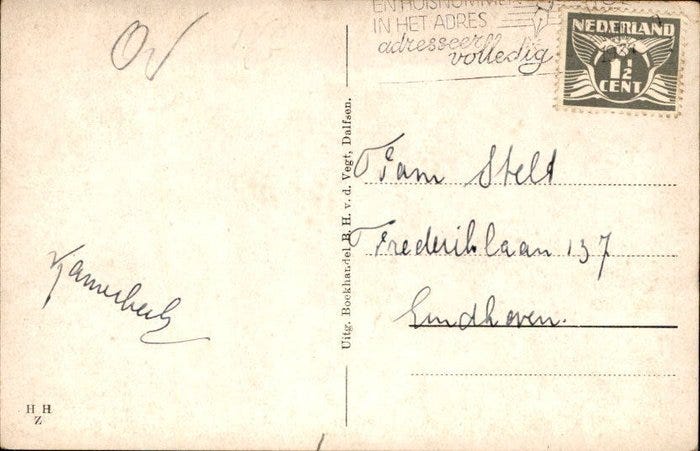 OV
EN HUISNUMMER
IN HET ADRES
adresseer
volledig
NEDERLAND
1½
CENT
Uitg. Boekhandel B. H. v. d. Vegt, Dalfsen.
Fam Stelt
Frederiklaan 137
Eindhoven.
H H
Z